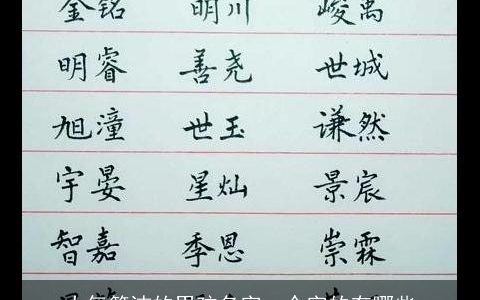 金铭 明川 峻禹
明睿 善尧 世城
旭潼 世玉 谦然
宇晏 星灿 景宸
智嘉 季恩 崇霖